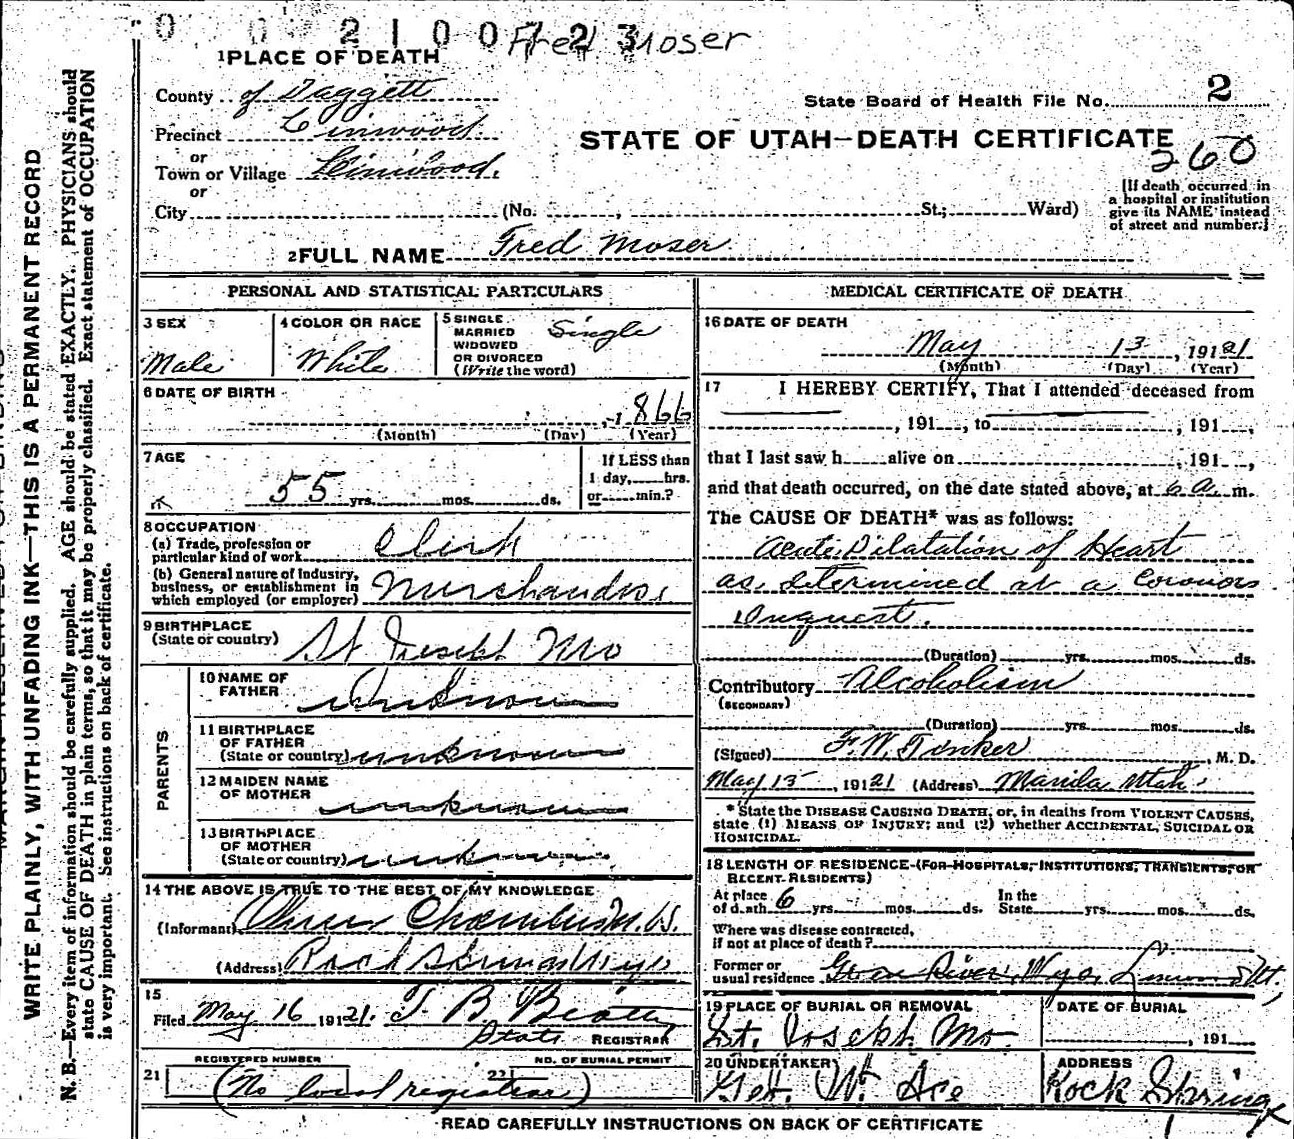 0 0 2 1 0 0 7 2 3
Fred Moser
1 PLACE OF DEATH
County of Daggett
State Board of Health File No. 2
Precinct Linwood
STATE OF UTAH—DEATH CERTIFICATE
260
or
Town or Village Linwood.
or
City (No. , St.; Ward)
[If death occurred in
a hospital or institution
give its NAME instead
of street and number.]
2 FULL NAME Fred Moser
PERSONAL AND STATISTICAL PARTICULARS
3 SEX
Male
4 COLOR OR RACE
White
5 SINGLE
MARRIED
WIDOWED
OR DIVORCED
(Write the word)
Single
6 DATE OF BIRTH
, 1866
(Month) (Day) (Year)
7 AGE
55 yrs. mos. ds.
If LESS than
1 day, hrs.
or min.?
8 OCCUPATION
(a) Trade, profession or
particular kind of work Clerk
(b) General nature of Industry,
business, or establishment in
which employed (or employer) Merchandise
9 BIRTHPLACE
(State or country) St Joseph Mo
PARENTS
10 NAME OF
FATHER Unknown
11 BIRTHPLACE
OF FATHER
(State or country) unknown
12 MAIDEN NAME
OF MOTHER unknown
13 BIRTHPLACE
OF MOTHER
(State or country) unknown
14 THE ABOVE IS TRUE TO THE BEST OF MY KNOWLEDGE
(Informant) Oliver Chambers M.D.
(Address) Rock Springs Wyo
15
Filed May 16 1921. T. B. Beatty
State REGISTRAR
21 REGISTERED NUMBER
22 NO. OF BURIAL PERMIT
(No local registrar)
MEDICAL CERTIFICATE OF DEATH
16 DATE OF DEATH
May 13, 191 21
(Month) (Day) (Year)
17 I HEREBY CERTIFY, That I attended deceased from
, 191 , to , 191 ,
that I last saw h alive on , 191 ,
and that death occurred, on the date stated above, at 6 a. m.
The CAUSE OF DEATH* was as follows:
Acute Dilatation of Heart
as determined at a Coronors
Inquest.
(Duration) yrs. mos. ds.
Contributory Alcoholism
(SECONDARY)
(Duration) yrs. mos. ds.
(Signed) F. W. Tinker, M. D.
May 15, 191 21 (Address) Manila Utah
* State the DISEASE CAUSING DEATH, or, in deaths from VIOLENT CAUSES,
state (1) MEANS OF INJURY; and (2) whether ACCIDENTAL, SUICIDAL OR
HOMICIDAL.
18 LENGTH OF RESIDENCE (FOR HOSPITALS, INSTITUTIONS, TRANSIENTS, OR
RECENT RESIDENTS)
At place
of death 6 yrs. mos. ds.
In the
State yrs. mos. ds.
Where was disease contracted,
if not at place of death?
Former or
usual residence Green River, Wyo, Linwood Ut,
19 PLACE OF BURIAL OR REMOVAL
St. Joseph Mo.
DATE OF BURIAL
, 191
20 UNDERTAKER
Geo. W. Ace
ADDRESS
Rock Springs
READ CAREFULLY INSTRUCTIONS ON BACK OF CERTIFICATE
WRITE PLAINLY, WITH UNFADING INK—THIS IS A PERMANENT RECORD
N. B.—Every item of information should be carefully supplied. AGE should be stated EXACTLY. PHYSICIANS should
state CAUSE OF DEATH in plain terms, so that it may be properly classified. Exact statement of OCCUPATION
is very important. See instructions on back of certificate.